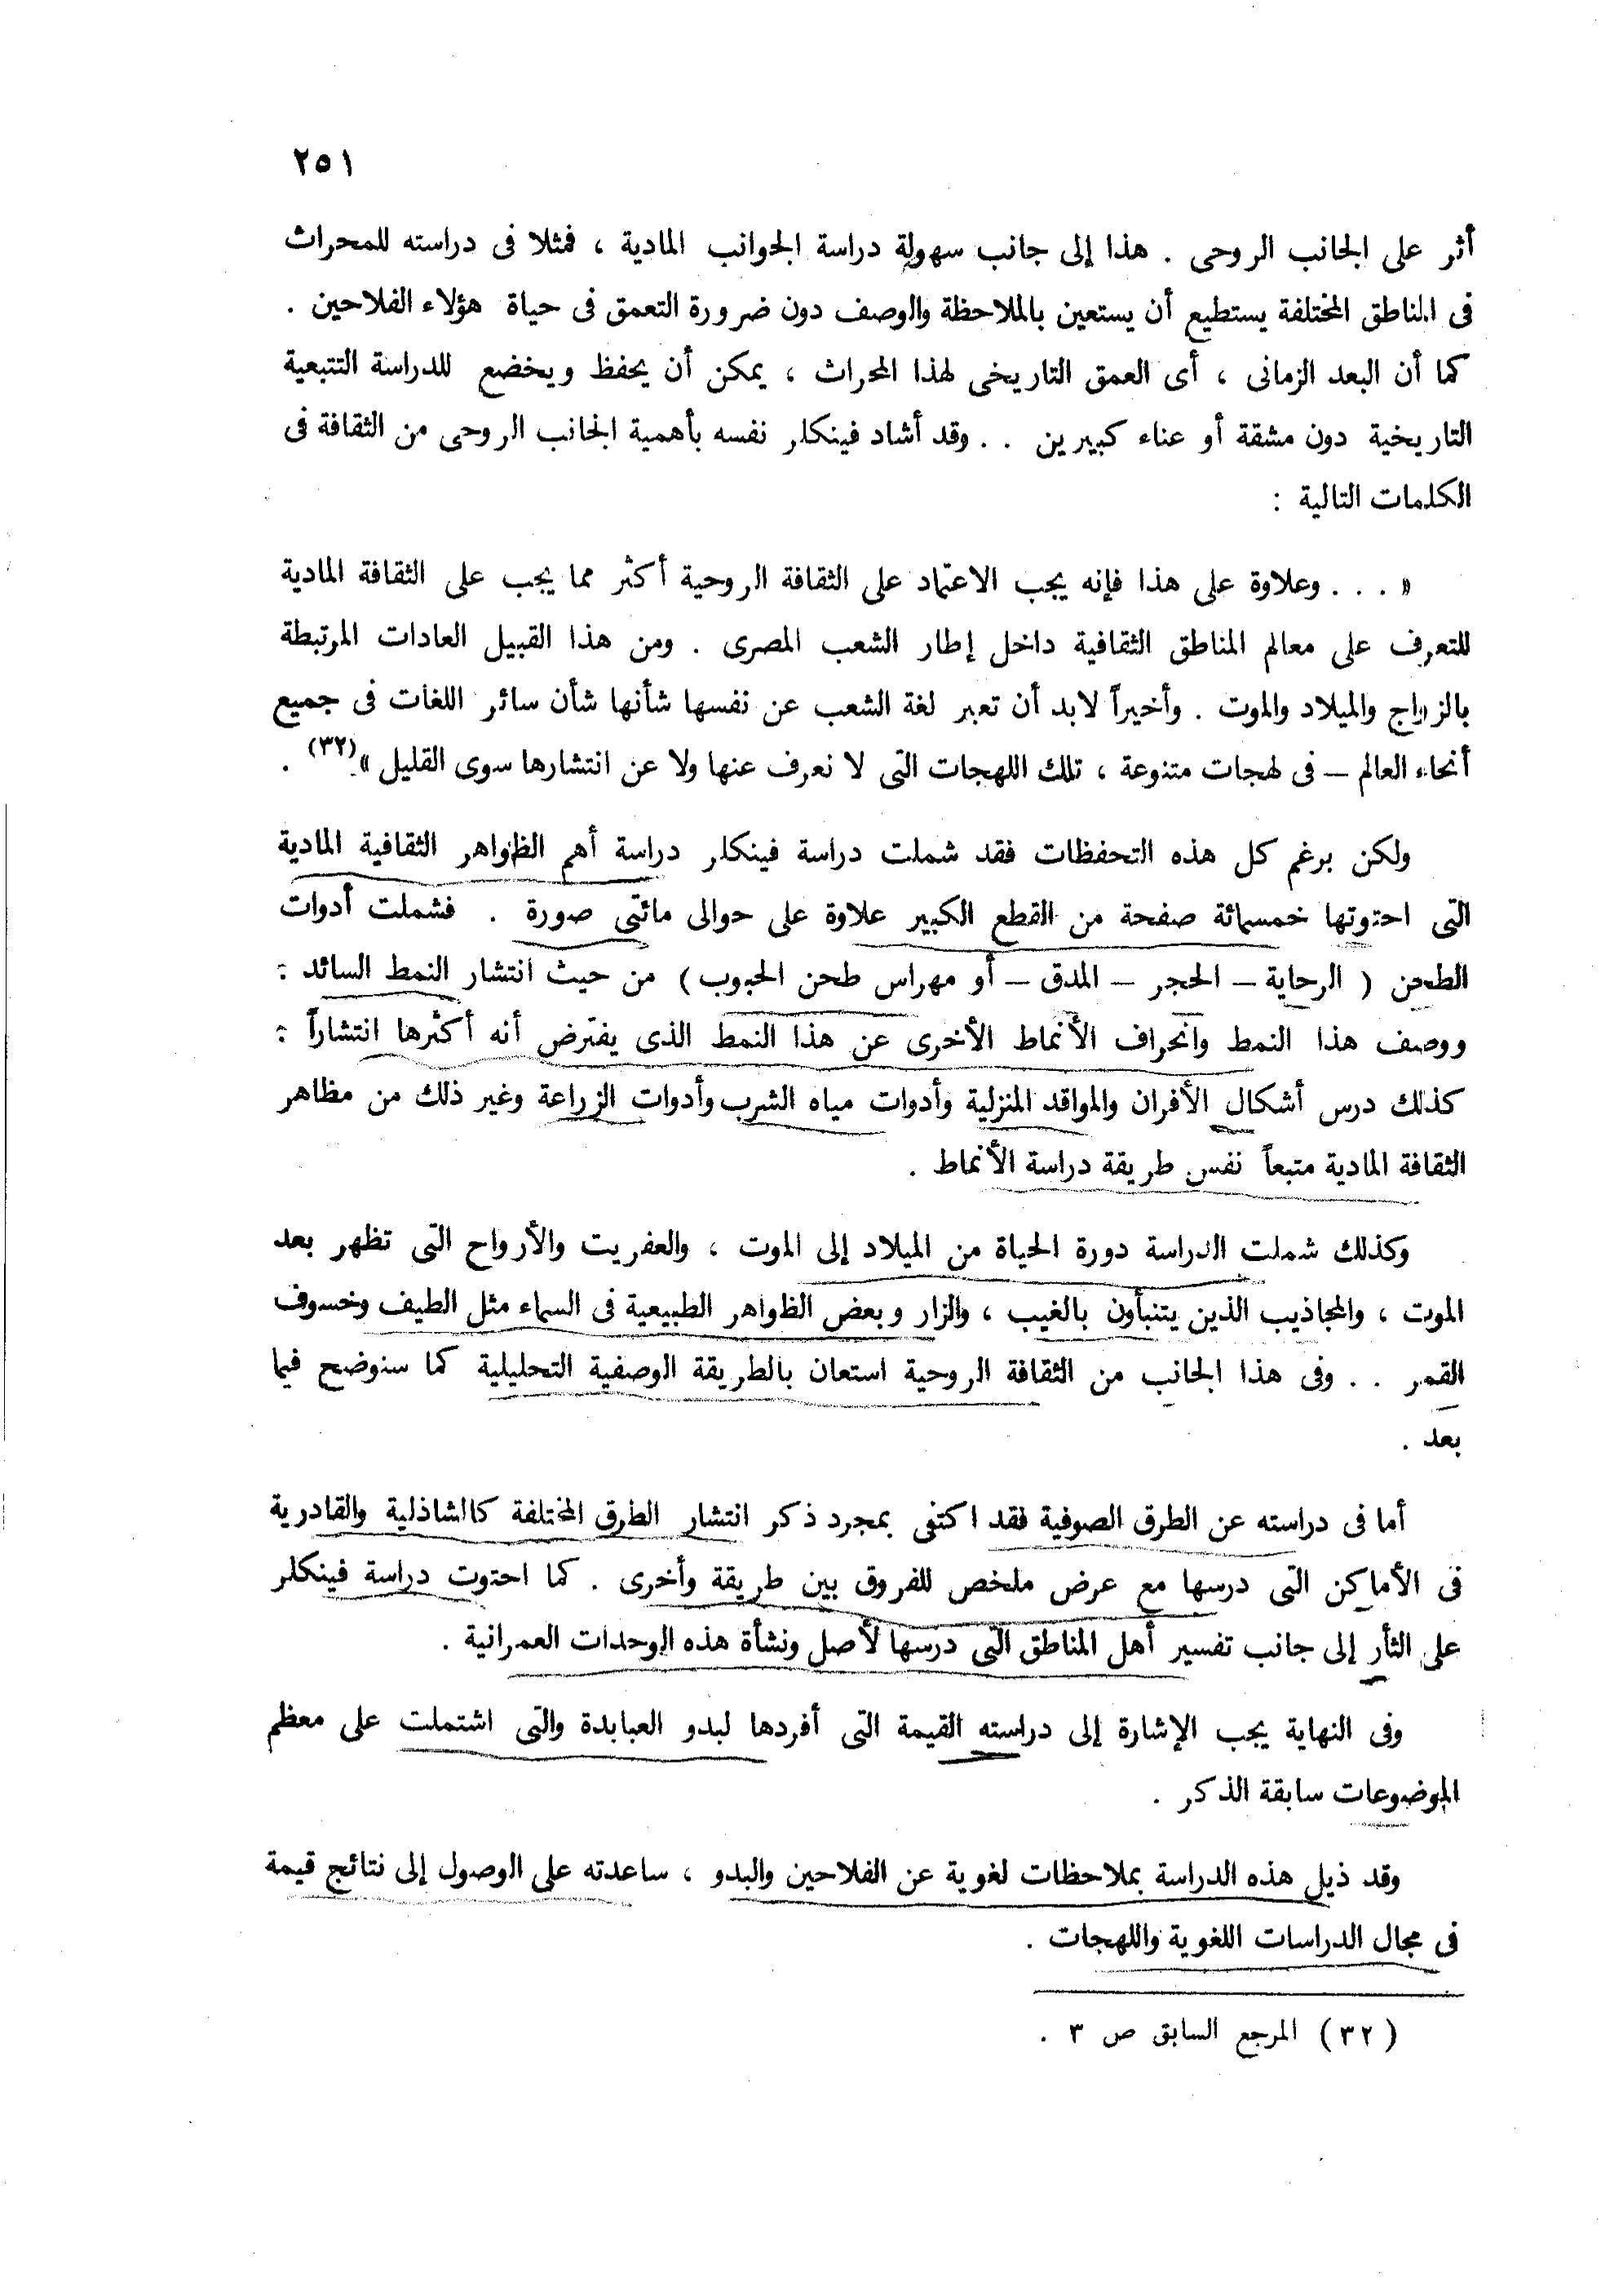 ٢٥١
أثر على الجانب الروحى . هذا إلى جانب سهولة دراسة الجوانب المادية ، فمثلا فى دراسته للمحراث
فى المناطق المختلفة يستطيع أن يستعين بالملاحظة والوصف دون ضرورة التعمق فى حياة هؤلاء الفلاحين .
كما أن البعد الزمانى ، أى العمق التاريخى لهذا المحراث ، يمكن أن يحفظ ويخضع للدراسة التتبعية
التاريخية دون مشقة أو عناء كبيرين . . وقد أشاد فينكلر نفسه بأهمية الجانب الروحى من الثقافة فى
الكلمات التالية :
« . . . وعلاوة على هذا فإنه يجب الاعتماد على الثقافة الروحية أكثر مما يجب على الثقافة المادية
للتعرف على معالم المناطق الثقافية داخل إطار الشعب المصرى . ومن هذا القبيل العادات المرتبطة
بالزواج والميلاد والموت . وأخيراً لابد أن تعبر لغة الشعب عن نفسها شأنها شأن سائر اللغات فى جميع
أنحاء العالم – فى لهجات متنوعة ، تلك اللهجات التى لا نعرف عنها ولا عن انتشارها سوى القليل »(٣٢) .
ولكن برغم كل هذه التحفظات فقد شملت دراسة فينكلر دراسة أهم الظواهر الثقافية المادية
التى احتوتها خمسمائة صفحة من القطع الكبير علاوة على حوالى مائتى صورة . فشملت أدوات
الطحن ( الرحاية – الحجر – المدق – أو مهراس طحن الحبوب ) من حيث انتشار النمط السائد :
ووصف هذا النمط وانحراف الأنماط الأخرى عن هذا النمط الذى يفترض أنه أكثرها انتشاراً :
كذلك درس أشكال الأفران والمواقد المنزلية وأدوات مياه الشرب وأدوات الزراعة وغير ذلك من مظاهر
الثقافة المادية متبعاً نفس طريقة دراسة الأنماط .
وكذلك شملت الدراسة دورة الحياة من الميلاد إلى الموت ، والعفريت والأرواح التى تظهر بعد
الموت ، والمجاذيب الذين يتنبأون بالغيب ، والزار وبعض الظواهر الطبيعية فى السماء مثل الطيف وخسوف
القمر . . وفى هذا الجانب من الثقافة الروحية استعان بالطريقة الوصفية التحليلية كما سنوضح فيما
بعد .
أما فى دراسته عن الطرق الصوفية فقد اكتفى بمجرد ذكر انتشار الطرق المختلفة كالشاذلية والقادرية
فى الأماكن التى درسها مع عرض ملخص للفروق بين طريقة وأخرى . كما احتوت دراسة فينكلر
على الثأر إلى جانب تفسير أهل المناطق التى درسها لأصل ونشأة هذه الوحدات العمرانية .
وفى النهاية يجب الإشارة إلى دراسته القيمة التى أفردها لبدو العبابدة والتى اشتملت على معظم
الموضوعات سابقة الذكر .
وقد ذيل هذه الدراسة بملاحظات لغوية عن الفلاحين والبدو ، ساعدته على الوصول إلى نتائج قيمة
فى مجال الدراسات اللغوية واللهجات .
( ٣٢ ) المرجع السابق ص ٣ .